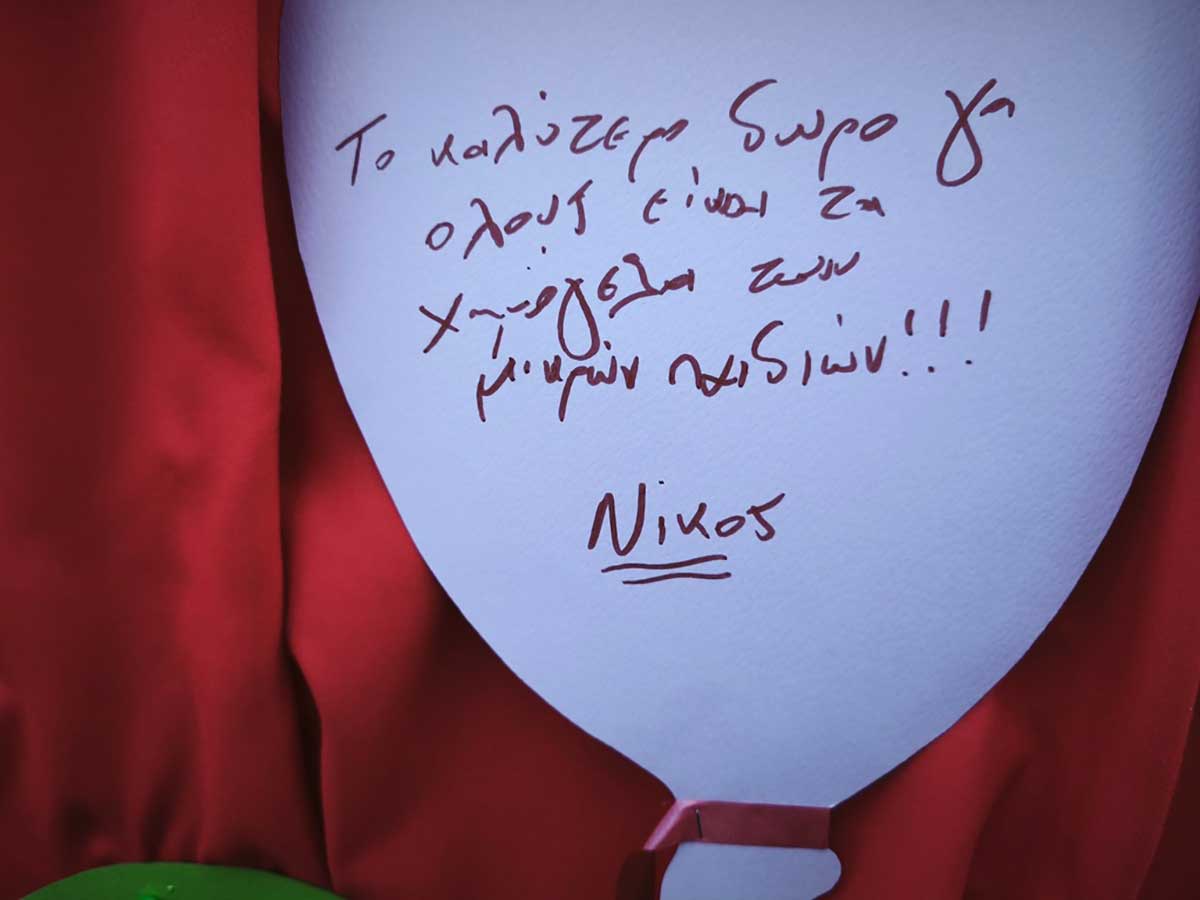 Το καλύτερο δωρο για
ολους είναι τα
χαμόγελα των
μικρών παιδιών!!!
Νίκος